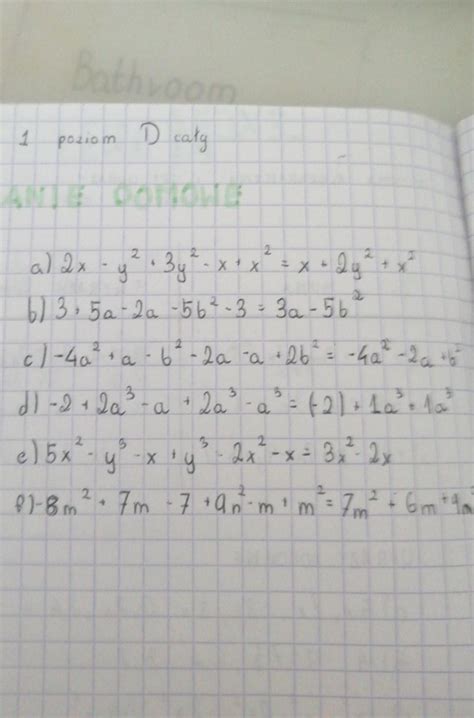 Bathroom
1 poziom D cały
ANIE DOMOWE
a) 2x - y² + 3y² - x + x² = x + 2y² + x²
b) 3 + 5a - 2a - 5b² - 3 = 3a - 5b²
c) -4a² + a - b² - 2a - a + 2b² = -4a² - 2a + b²
d) -2 + 2a³ - a + 2a³ - a³ = (-2) + 1a³ + 1a³
e) 5x² - y³ - x + y³ - 2x² - x = 3x² - 2x
f) -8m² + 7m - 7 + 9n² - m + m² = 7m² + 6m + 9n